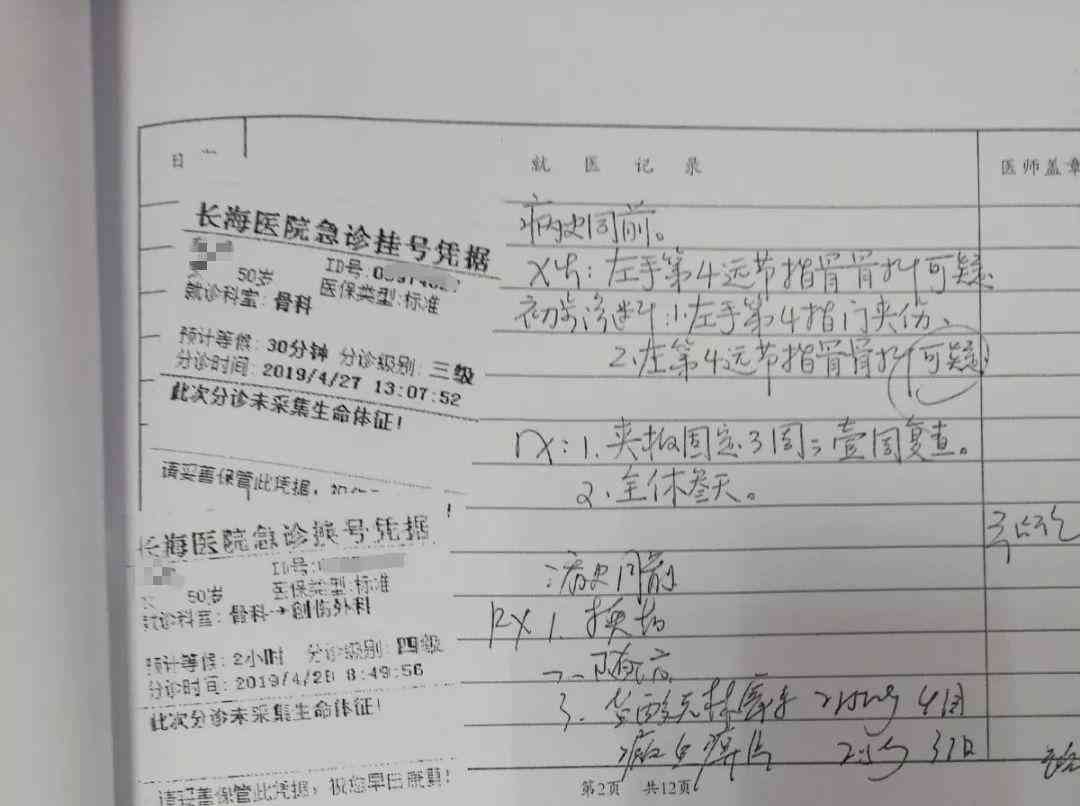 日
就 医 记 录
医师盖章
长海医院急诊挂号凭据
ID号:
50岁 医保类型:标准
就诊科室: 骨科
预计等候: 30分钟 分诊级别: 三级
分诊时间: 2019/4/27 13:07:52
此次分诊未采集生命体征!
请妥善保管此凭据,
病史同前。
X片: 左手第4远节指骨骨折可疑
初步诊断: 1.左手第4指门夹伤、
2.左第4远节指骨骨折可疑
rx: 1. 夹板固定3周; 壹周复查。
2. 全休叁天。
长海医院急诊挂号凭据
ID号:
50岁 医保类型:标准
就诊科室: 骨科→创伤外科
预计等候: 2小时 分诊级别: 四级
分诊时间: 2019/4/28 8:49:56
此次分诊未采集生命体征!
请妥善保管此凭据, 祝您早日康复!
: 病史同前
RX 1. 换药
3.
第2页 共12页